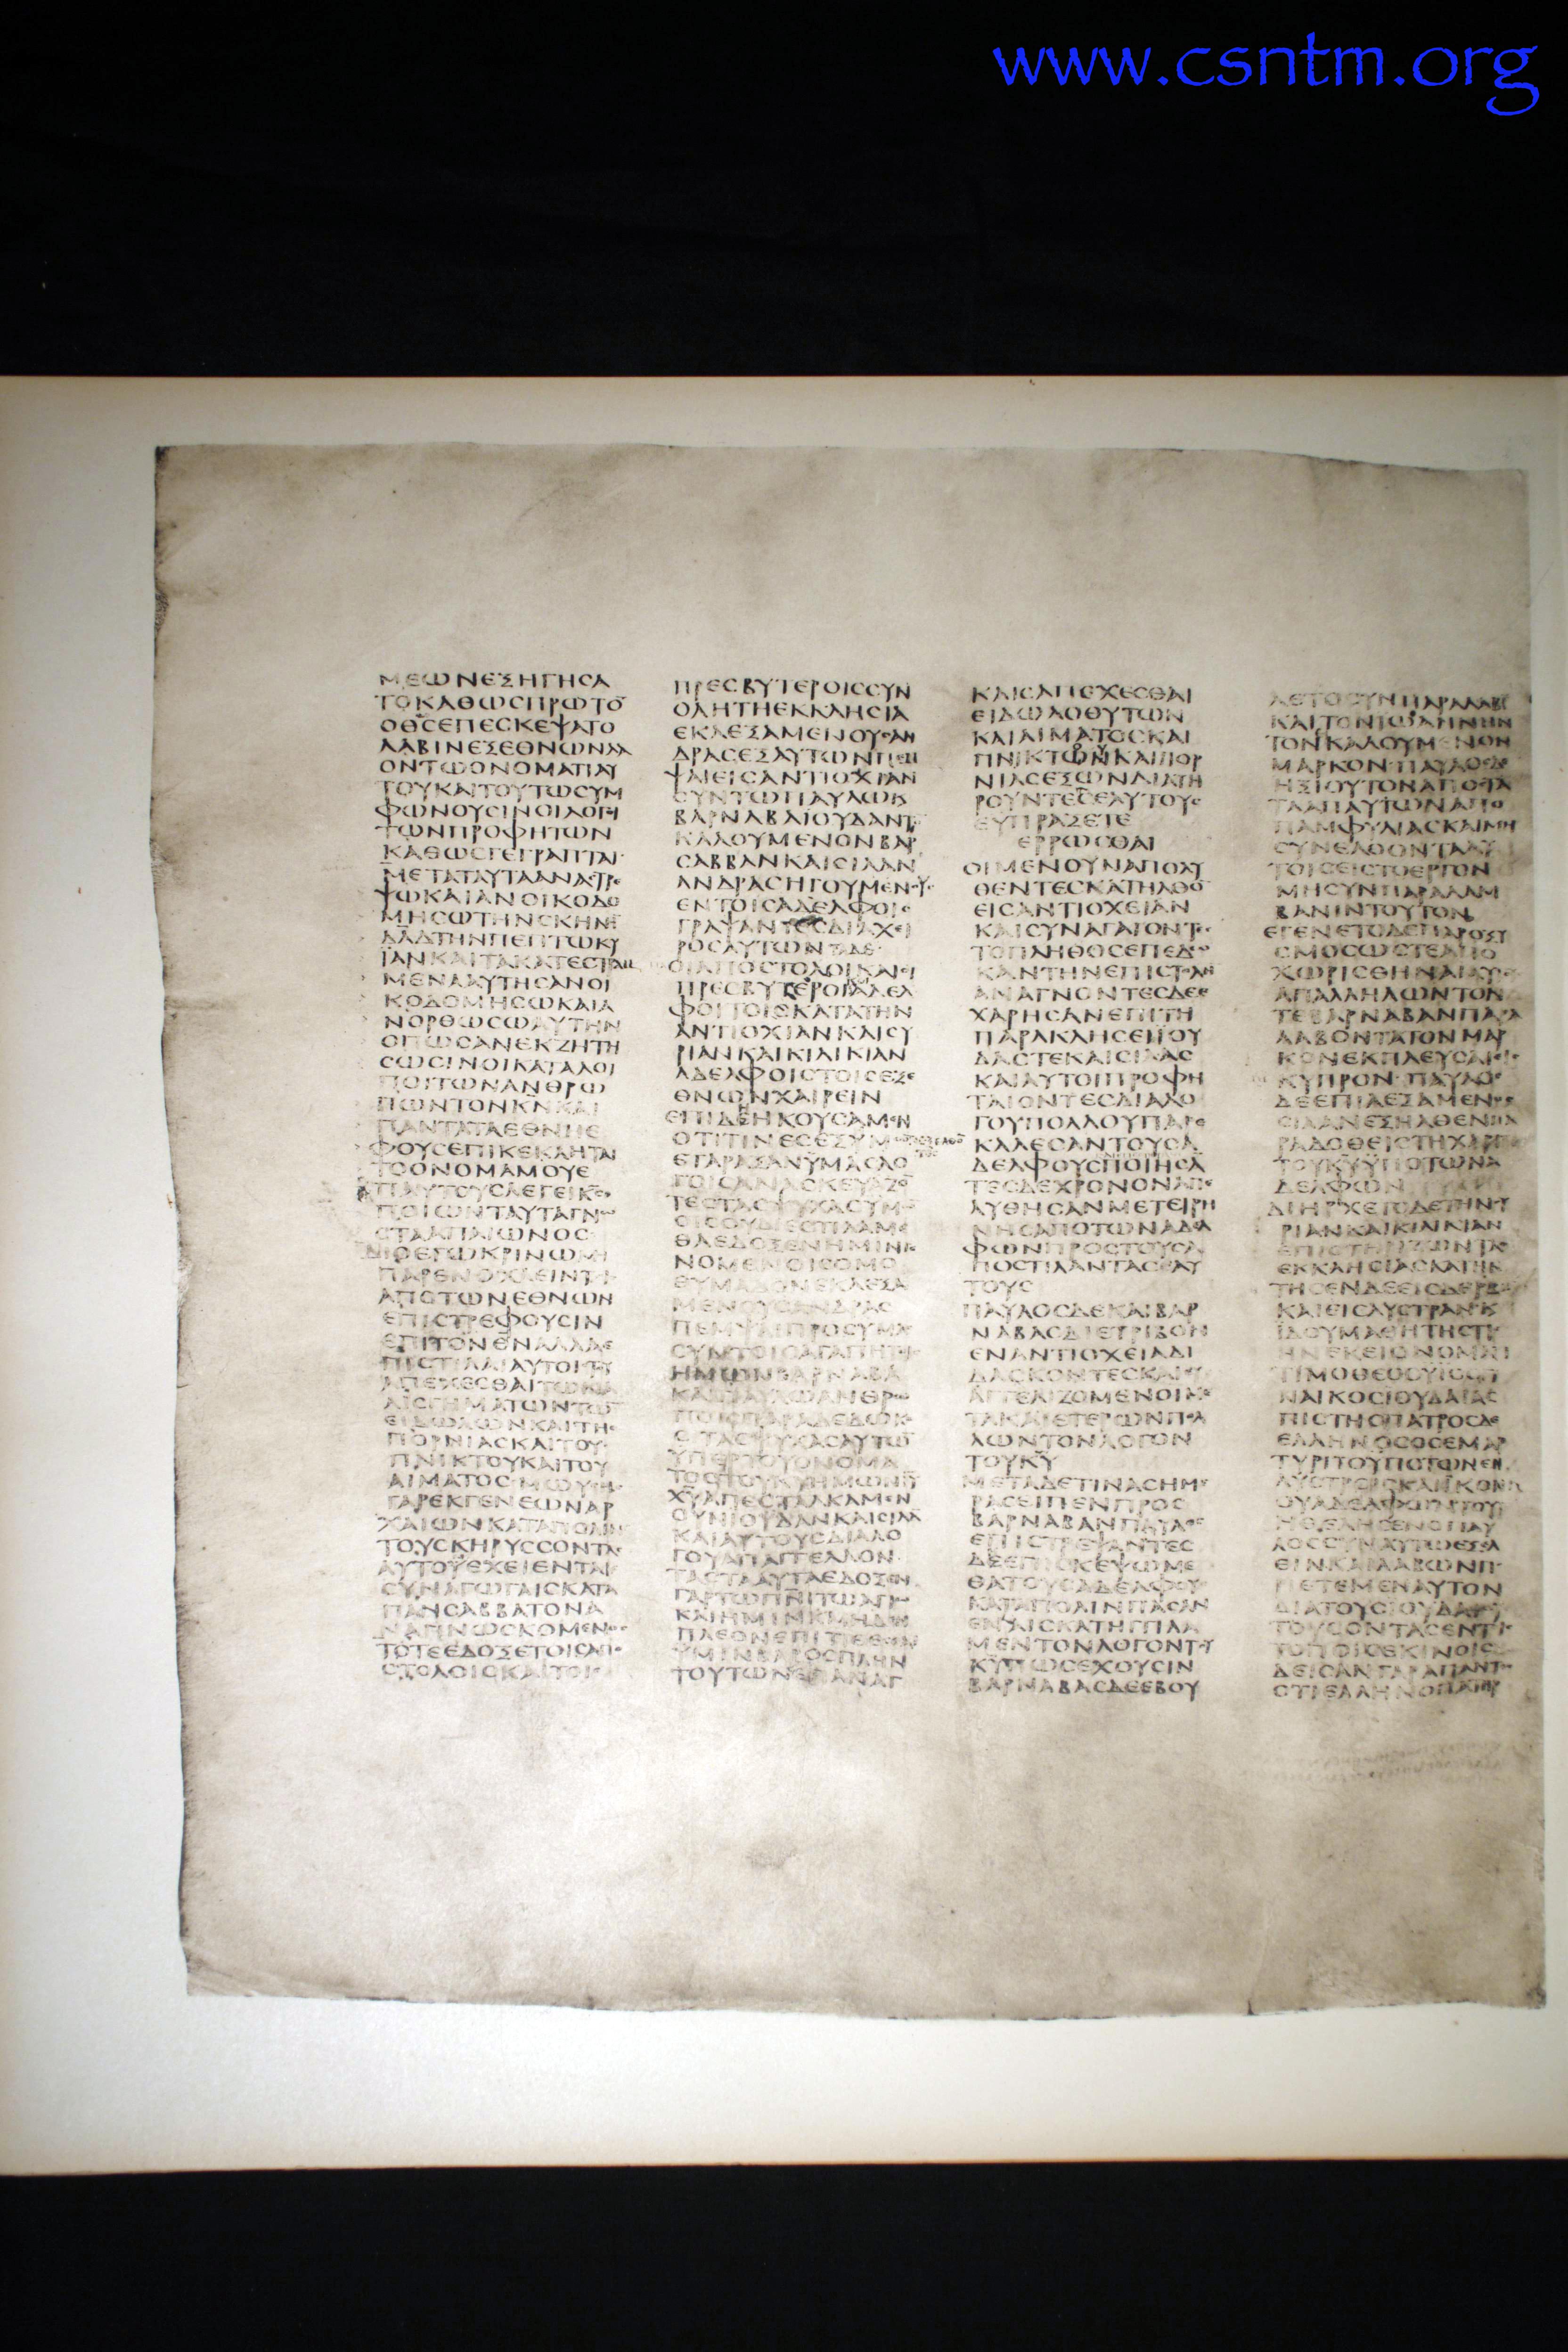 www.csntm.org
ΜΕΩΝΕΞΗΓΗCΑ
ΤΟΚΑΘΩCΠΡΩΤΟ̅
ΟΘ̅CΕΠΕCΚΕΨΑΤΟ
ΛΑΒΙΝΕΞΕΘΝΩΝΛΑ
ΟΝΤΩΟΝΟΜΑΤΙΑΥ
ΤΟΥΚΑΙΤΟΥΤΩCΥΜ
ΦΩΝΟΥCΙΝΟΙΛΟΓΟΙ
ΤΩΝΠΡΟΦΗΤΩΝ
ΚΑΘΩCΓΕΓΡΑΠΤΑΙ
ΜΕΤΑΤΑΥΤΑΑΝΑΤΡΕ
ΨΩΚΑΙΑΝΟΙΚΟΔΟ
ΜΗCΩΤΗΝCΚΗΝΗ̅
ΔΑ̅ΔΤΗΝΠΕΠΤΩΚΥ
ΙΑΝΚΑΙΤΑΚΑΤΕCΤΡΑΜ
ΜΕΝΑΑΥΤΗCΑΝΟΙ
ΚΟΔΟΜΗCΩΚΑΙΑ
ΝΟΡΘΩCΩΑΥΤΗΝ
ΟΠΩCΑΝΕΚΖΗΤΗ
CΩCΙΝΟΙΚΑΤΑΛΟΙ
ΠΟΙΤΩΝΑΝΘΡΩ
ΠΩΝΤΟΝΚ̅Ν̅ΚΑΙ
ΠΑΝΤΑΤΑΕΘΝΗΕ
ΦΟΥCΕΠΙΚΕΚΛΗΤΑΙ
ΤΟΟΝΟΜΑΜΟΥΕ
ΠΑΥΤΟΥCΛΕΓΕΙΚ̅C̅
ΠΟΙΩΝΤΑΥΤΑΓΝΩ
CΤΑΑΠΑΙΩΝΟC
ΔΙΟΕΓΩΚΡΙΝΩΜΗ
ΠΑΡΕΝΟΧΛΕΙΝΤΟΙC
ΑΠΟΤΩΝΕΘΝΩΝ
ΕΠΙCΤΡΕΦΟΥCΙΝ
ΕΠΙΤΟΝΘ̅Ν̅ΑΛΛΑΕ
ΠΙCΤΙΛΑΙΑΥΤΟΙCΤΟΥ
ΑΠΕΧΕCΘΑΙΤΩΝΑ
ΛΙCΓΗΜΑΤΩΝΤΩ̅
ΕΙΔΩΛΩΝΚΑΙΤΗC
ΠΟΡΝΙΑCΚΑΙΤΟΥ
ΠΝΙΚΤΟΥΚΑΙΤΟΥ
ΑΙΜΑΤΟCΜΩΥCΗC
ΓΑΡΕΚΓΕΝΕΩΝΑΡ
ΧΑΙΩΝΚΑΤΑΠΟΛΙΝ
ΤΟΥCΚΗΡΥCCΟΝΤΑC
ΑΥΤΟΥΕΧΕΙΕΝΤΑΙC
CΥΝΑΓΩΓΑΙCΚΑΤΑ
ΠΑΝCΑΒΒΑΤΟΝΑ
ΝΑΓΙΝΩCΚΟΜΕΝΟC
ΤΟΤΕΕΔΟΞΕΤΟΙCΑΠΟ
CΤΟΛΟΙCΚΑΙΤΟΙC
ΠΡΕCΒΥΤΕΡΟΙCCΥΝ
ΟΛΗΤΗΕΚΚΛΗCΙΑ
ΕΚΛΕΞΑΜΕΝΟΥCΑΝ
ΔΡΑCΕΞΑΥΤΩΝΠΕΜ
ΨΑΙΕΙCΑΝΤΙΟΧΙΑΝ
CΥΝΤΩΠΑΥΛΩΚ
ΒΑΡΝΑΒΑΙΟΥΔΑΝΤΟΝ
ΚΑΛΟΥΜΕΝΟΝΒΑΡ
CΑΒΒΑΝΚΑΙCΙΛΑΝ
ΑΝΔΡΑCΗΓΟΥΜΕΝΟΥC
ΕΝΤΟΙCΑΔΕΛΦΟΙC
ΓΡΑΨΑΝΤΕCΔΙΑΧΕΙ
ΡΟCΑΥΤΩΝΤΑΔΕ
ΟΙΑΠΟCΤΟΛΟΙΚΑΙΟΙ
ΠΡΕCΒΥΤΕΡΟΙΑΔΕΛ
ΦΟΙΤΟΙCΚΑΤΑΤΗΝ
ΑΝΤΙΟΧΙΑΝΚΑΙCΥ
ΡΙΑΝΚΑΙΚΙΛΙΚΙΑΝ
ΑΔΕΛΦΟΙCΤΟΙCΕΞΕ
ΘΝΩΝΧΑΙΡΕΙΝ
ΕΠΙΔΗΗΚΟΥCΑΜΕΝ
ΟΤΙΤΙΝΕCΕΞΥΜΩΝ
ΕΤΑΡΑΞΑΝΥΜΑCΛΟ
ΓΟΙCΑΝΑCΚΕΥΑΖΟ̅
ΤΕCΤΑCΨΥΧΑCΥΜΩΝ
ΟΙCΟΥΔΙΕCΤΙΛΑΜΕ
ΘΑΕΔΟΞΕΝΗΜΙΝΓΕ
ΝΟΜΕΝΟΙCΟΜΟ
ΘΥΜΑΔΟΝΕΚΛΕΞΑ
ΜΕΝΟΥCΑΝΔΡΑC
ΠΕΜΨΑΙΠΡΟCΥΜΑC
CΥΝΤΟΙCΑΓΑΠΗΤΟΙC
ΗΜΩΝΒΑΡΝΑΒΑ
ΚΑΙΠΑΥΛΩΑΝΘΡΩ
ΠΟΙCΠΑΡΑΔΕΔΩΚΟ
CΙΤΑCΨΥΧΑCΑΥΤΩ̅
ΥΠΕΡΤΟΥΟΝΟΜΑ
ΤΟCΤΟΥΚ̅Υ̅ΗΜΩΝΙ̅Υ̅
Χ̅Υ̅ΑΠΕCΤΑΛΚΑΜΕΝ
ΟΥΝΙΟΥΔΑΝΚΑΙCΙΛΑ̅
ΚΑΙΑΥΤΟΥCΔΙΑΛΟ
ΓΟΥΑΠΑΓΓΕΛΛΟΝ
ΤΑCΤΑΑΥΤΑΕΔΟΞΕΝ
ΓΑΡΤΩΠΝ̅Ι̅ΤΩΑΓΙΩ
ΚΑΙΗΜΙΝΜΗΔΕΝ
ΠΛΕΟΝΕΠΙΤΙΘΕCΘΑΙ
ΥΜΙΝΒΑΡΟCΠΛΗΝ
ΤΟΥΤΩΝΕΠΑΝΑΓ
ΚΑΙCΑΠΕΧΕCΘΑΙ
ΕΙΔΩΛΟΘΥΤΩΝ
ΚΑΙΑΙΜΑΤΟCΚΑΙ
ΠΝΙΚΤΩΝΚΑΙΠΟΡ
ΝΙΑCΕΞΩΝΔΙΑΤΗ
ΡΟΥΝΤΕCΕΑΥΤΟΥC
ΕΥΠΡΑΞΕΤΕ
ΕΡΡΩCΘΑΙ
ΟΙΜΕΝΟΥΝΑΠΟΛΥ
ΘΕΝΤΕCΚΑΤΗΛΘΟ̅
ΕΙCΑΝΤΙΟΧΕΙΑΝ
ΚΑΙCΥΝΑΓΑΓΟΝΤΕC
ΤΟΠΛΗΘΟCΕΠΕΔΩ
ΚΑΝΤΗΝΕΠΙCΤΟΛΗ
ΑΝΑΓΝΟΝΤΕCΔΕΕ
ΧΑΡΗCΑΝΕΠΙΤΗ
ΠΑΡΑΚΛΗCΕΙΙΟΥ
ΔΑCΤΕΚΑΙCΙΛΑC
ΚΑΙΑΥΤΟΙΠΡΟΦΗ
ΤΑΙΟΝΤΕCΔΙΑΛΟ
ΓΟΥΠΟΛΛΟΥΠΑΡΕ
ΚΑΛΕCΑΝΤΟΥCΑ
ΔΕΛΦΟΥCΠΟΙΗCΑ̅
ΤΕCΔΕΧΡΟΝΟΝΑΠΕ
ΛΥΘΗCΑΝΜΕΤΕΙΡΗ
ΝΗCΑΠΟΤΩΝΑΔΕΛ
ΦΩΝΠΡΟCΤΟΥCΑ
ΠΟCΤΙΛΑΝΤΑCΕΑΥ
ΤΟΥC
ΠΑΥΛΟCΔΕΚΑΙΒΑΡ
ΝΑΒΑCΔΙΕΤΡΙΒΟΝ
ΕΝΑΝΤΙΟΧΕΙΑΔΙ
ΔΑCΚΟΝΤΕCΚΑΙΕΥ
ΑΓΓΕΛΙΖΟΜΕΝΟΙΜΕ
ΤΑΚΑΙΕΤΕΡΩΝΠΟΛ
ΛΩΝΤΟΝΛΟΓΟΝ
ΤΟΥΚ̅Υ̅
ΜΕΤΑΔΕΤΙΝΑCΗΜΕ
ΡΑCΕΙΠΕΝΠΡΟC
ΒΑΡΝΑΒΑΝΠΑΥΛΟC
ΕΠΙCΤΡΕΨΑΝΤΕC
ΔΕΕΠΙCΚΕΨΩΜΕ
ΘΑΤΟΥCΑΔΕΛΦΟΥC
ΚΑΤΑΠΟΛΙΝΠΑCΑΝ
ΕΝΑΙCΚΑΤΗΓΓΙΛΑ
ΜΕΝΤΟΝΛΟΓΟΝΤΟΥ
Κ̅Υ̅ΠΩCΕΧΟΥCΙΝ
ΒΑΡΝΑΒΑCΔΕΕΒΟΥ
ΛΕΤΟCΥΝΠΑΡΑΛΑΒΙ
ΚΑΙΤΟΝΙΩΑΝΝΗΝ
ΤΟΝΚΑΛΟΥΜΕΝΟΝ
ΜΑΡΚΟΝΠΑΥΛΟCΔΕ
ΗΞΙΟΥΤΟΝΑΠΟCΤΑ
ΤΑΑΠΑΥΤΩΝΑΠΟ
ΠΑΜΦΥΛΙΑCΚΑΙΜΗ
CΥΝΕΛΘΟΝΤΑΑΥ
ΤΟΙCΕΙCΤΟΕΡΓΟΝ
ΜΗCΥΝΠΑΡΑΛΑΜ
ΒΑΝΙΝΤΟΥΤΟΝ
ΕΓΕΝΕΤΟΔΕΠΑΡΟΞΥ
CΜΟCΩCΤΕΑΠΟ
ΧΩΡΙCΘΗΝΑΙΑΥΤΟΥC
ΑΠΑΛΛΗΛΩΝΤΟΝ
ΤΕΒΑΡΝΑΒΑΝΠΑΡΑ
ΛΑΒΟΝΤΑΤΟΝΜΑΡ
ΚΟΝΕΚΠΛΕΥCΑΙΕΙC
ΚΥΠΡΟΝΠΑΥΛΟC
ΔΕΕΠΙΛΕΞΑΜΕΝΟC
CΙΛΑΝΕΞΗΛΘΕΝΠΑ
ΡΑΔΟΘΕΙCΤΗΧΑΡΙΤΙ
ΤΟΥΚ̅Υ̅ΥΠΟΤΩΝΑ
ΔΕΛΦΩΝ
ΔΙΗΡΧΕΤΟΔΕΤΗΝCΥ
ΡΙΑΝΚΑΙΚΙΛΙΚΙΑΝ
ΕΠΙCΤΗΡΙΖΩΝΤΑC
ΕΚΚΛΗCΙΑCΚΑΤΗΝ
ΤΗCΕΝΔΕΕΙCΔΕΡΒΗ̅
ΚΑΙΕΙCΛΥCΤΡΑΝΚ
ΙΔΟΥΜΑΘΗΤΗCΤΙC
ΗΝΕΚΕΙΟΝΟΜΑΤΙ
ΤΙΜΟΘΕΟCΥΙΟCΓΥ
ΝΑΙΚΟCΙΟΥΔΑΙΑC
ΠΙCΤΗCΠΑΤΡΟCΔΕ
ΕΛΛΗΝΟCΟCΕΜΑΡ
ΤΥΡΙΤΟΥΠΟΤΩΝΕΝ
ΛΥCΤΡΟΙCΚΑΙΙΚΟΝΙ
ΟΥΑΔΕΛΦΩΝΤΟΥΤΟ̅
ΗΘΕΛΗCΕΝΟΠΑΥ
ΛΟCCΥΝΑΥΤΩΕΞΕΛ
ΘΙΝΚΑΙΛΑΒΩΝΠΕ
ΡΙΕΤΕΜΕΝΑΥΤΟΝ
ΔΙΑΤΟΥCΙΟΥΔΑΙΟΥC
ΤΟΥCΟΝΤΑCΕΝΤΟΙC
ΤΟΠΟΙCΕΚΙΝΟΙC
ΔΕΙCΑΝΓΑΡΑΠΑΝΤΕC
ΟΤΙΕΛΛΗΝΟΠΑΤΗΡ